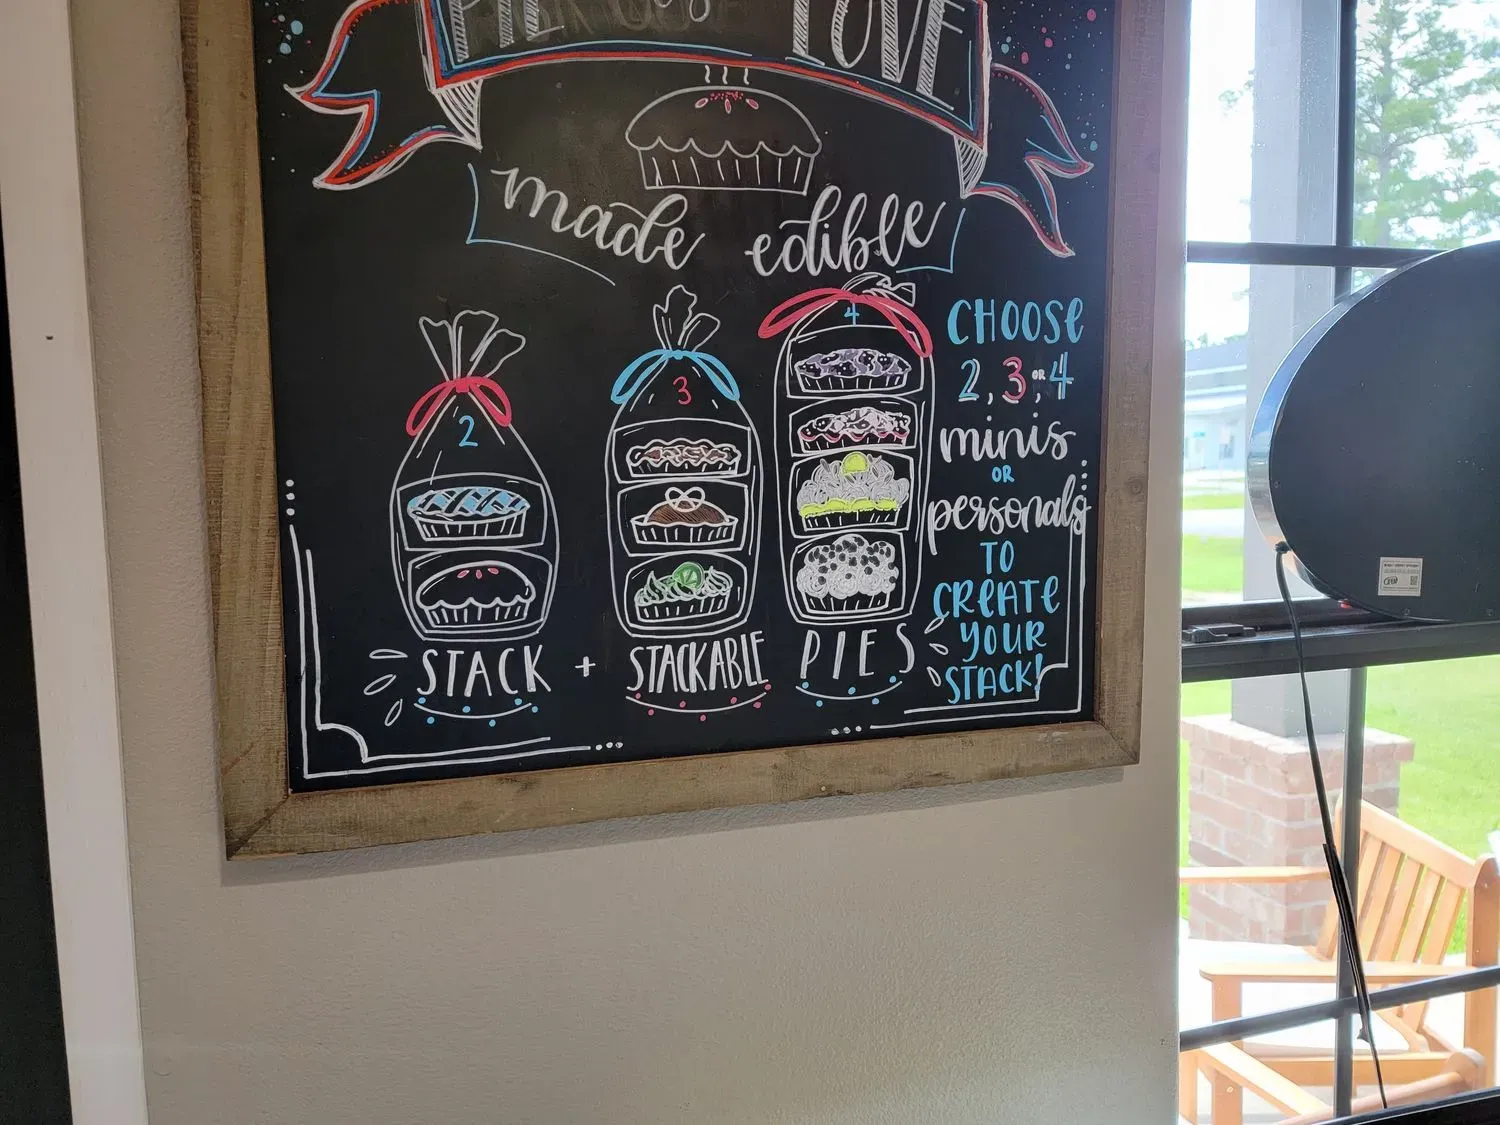 LOVE
made edible
2
3
4
CHOOSE
2, 3, or 4
minis
OR
personals
TO
CREATE
YOUR
STACK!
STACK + STACKABLE PIES